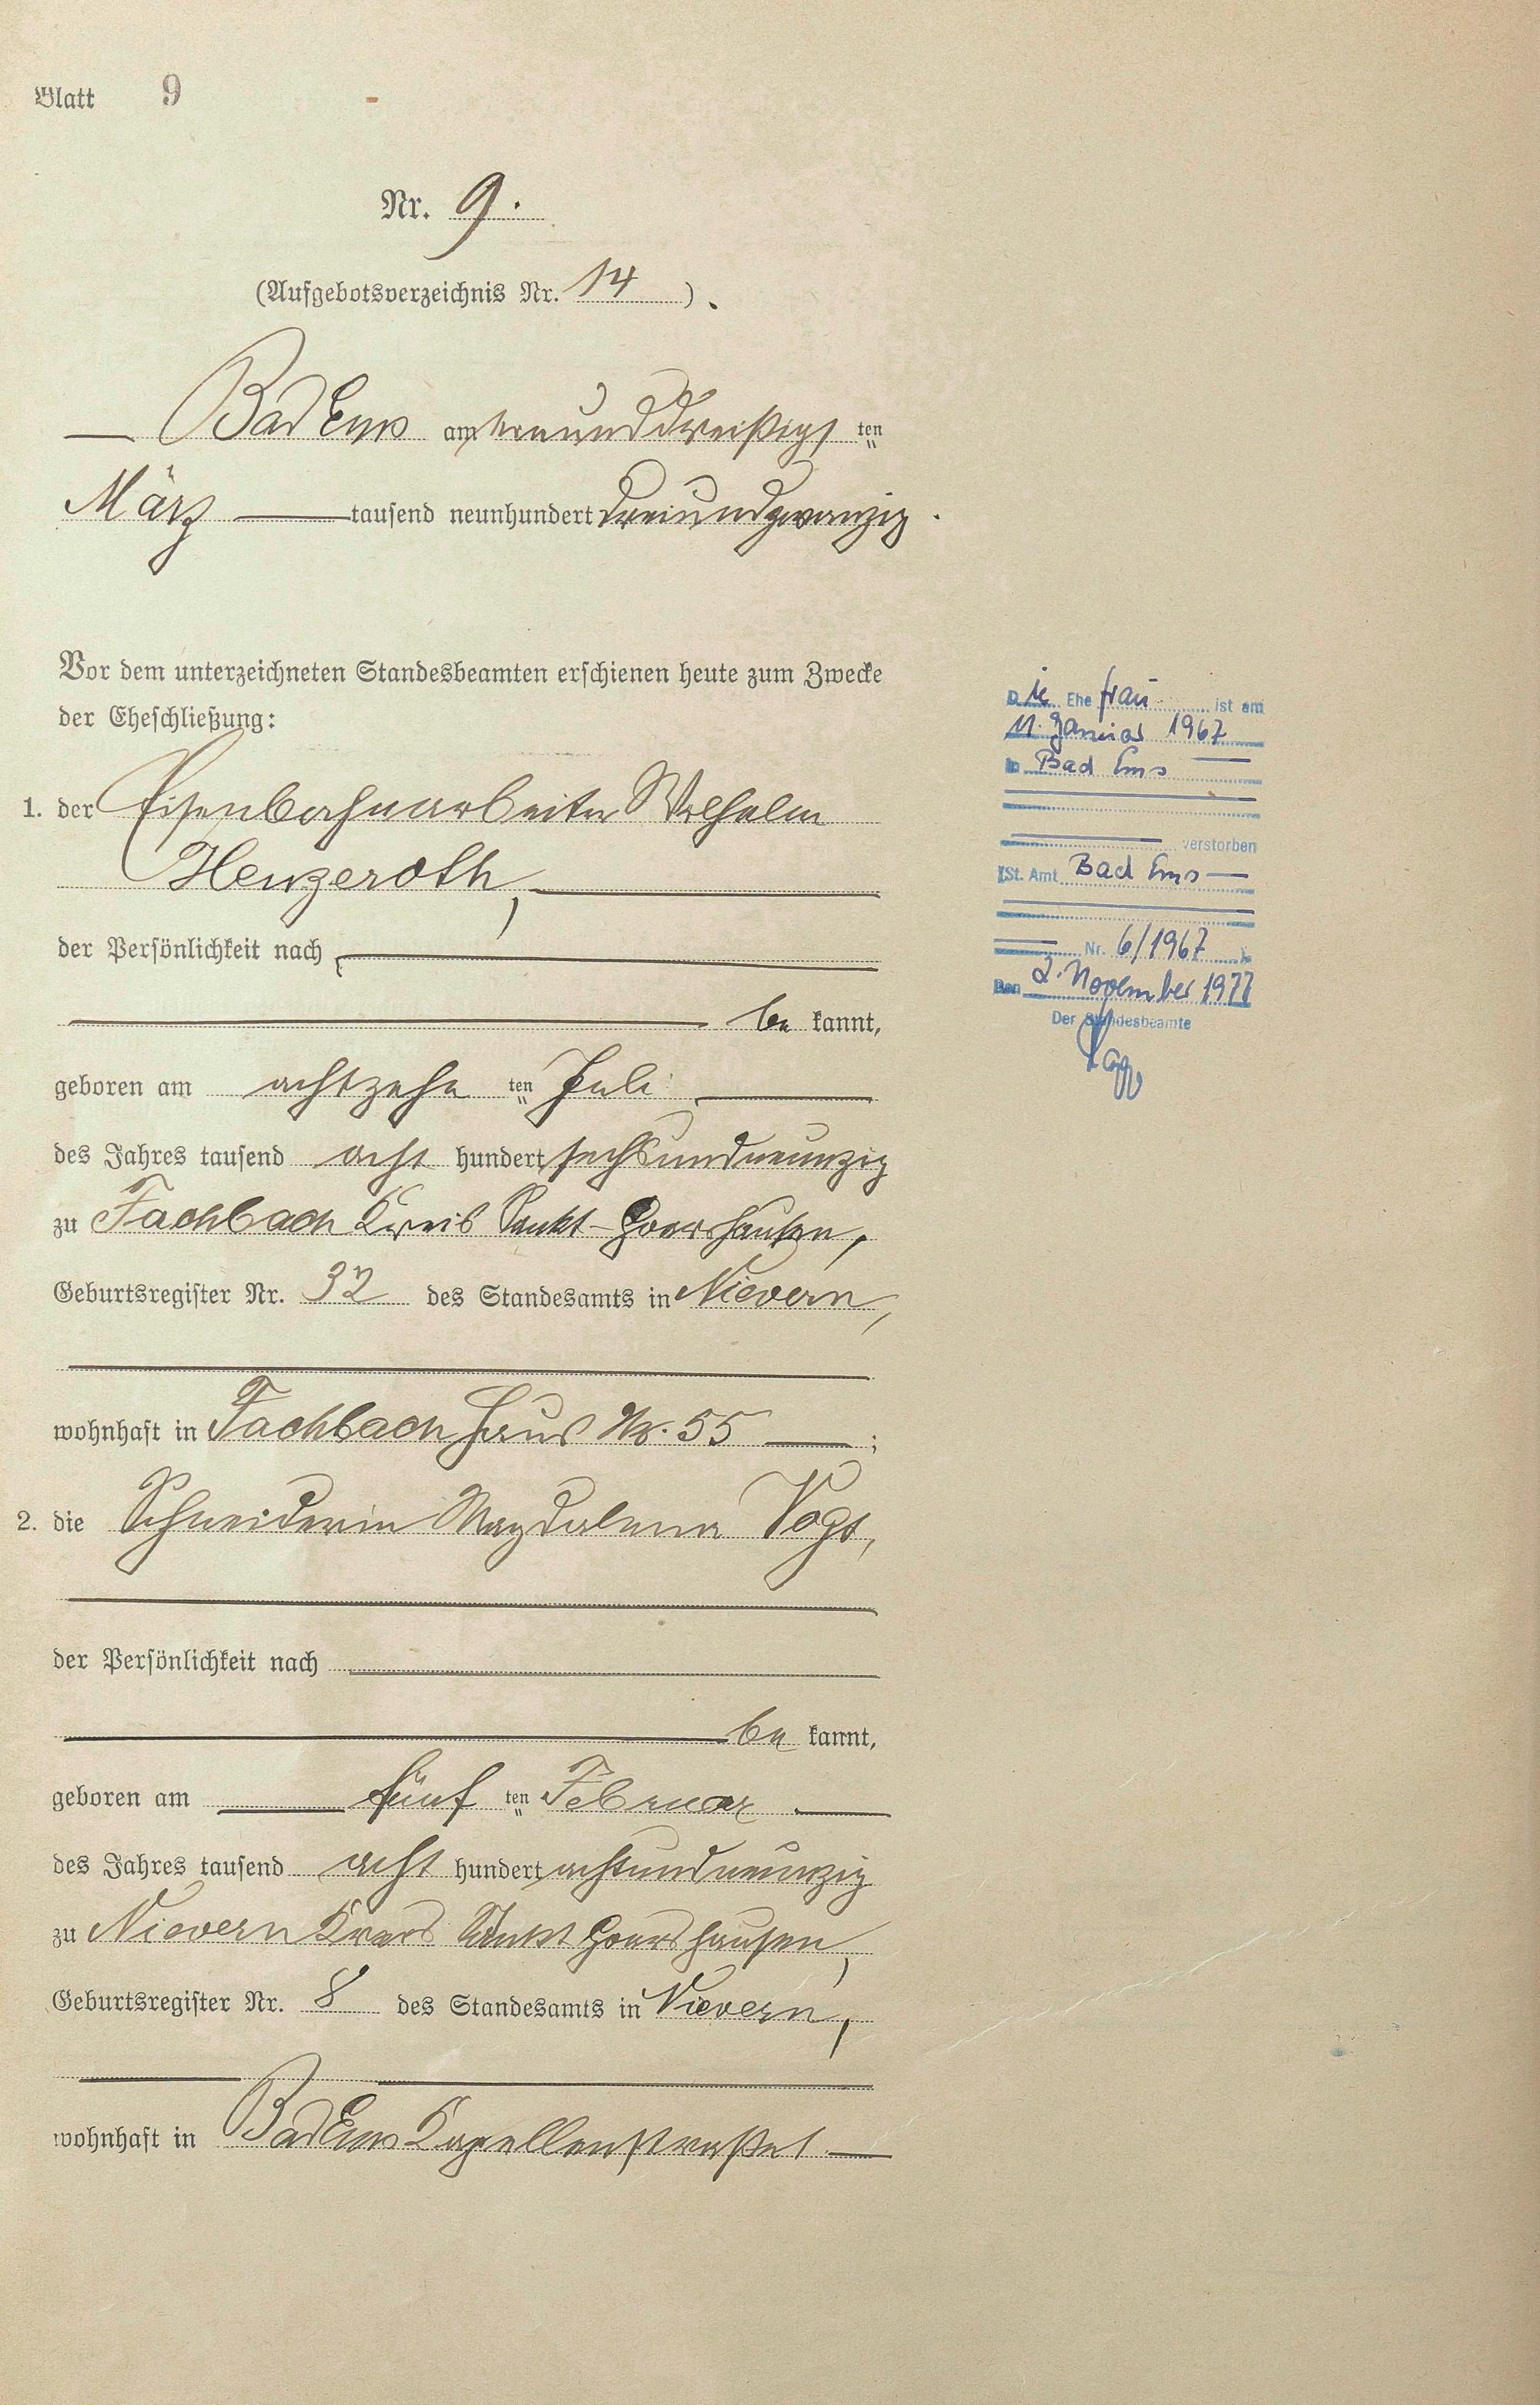 Blatt 9
Nr. 9.
(Aufgebotsverzeichnis Nr. 14).
Bad Ems am einunddreißigsten
März tausend neunhundert dreiundzwanzig.
Vor dem unterzeichneten Standesbeamten erschienen heute zum Zwecke
der Eheschließung:
1. der Eisenbahnarbeiter Wilhelm
Henzeroth,
der Persönlichkeit nach
be kannt,
geboren am achtzehn ten Juli
des Jahres tausend acht hundert sechsundneunzig
zu Fachbach Kreis Sankt-Goarshausen,
Geburtsregister Nr. 32 des Standesamts in Nievern,
wohnhaft in Fachbach Haus Nr. 55 ;
2. die Schneiderin Magdalena Vogt,
der Persönlichkeit nach
be kannt,
geboren am fünf ten Februar
des Jahres tausend acht hundert achtundneunzig
zu Nievern Kreis Sankt Goarshausen,
Geburtsregister Nr. 8 des Standesamts in Nievern,
wohnhaft in Bad Ems Kapellenstraße 1
Die Ehefrau ist am
11. Januar 1967
in Bad Ems
verstorben
(St. Amt Bad Ems
Nr. 6/1967 )
Den 2. November 1977
Der Standesbeamte